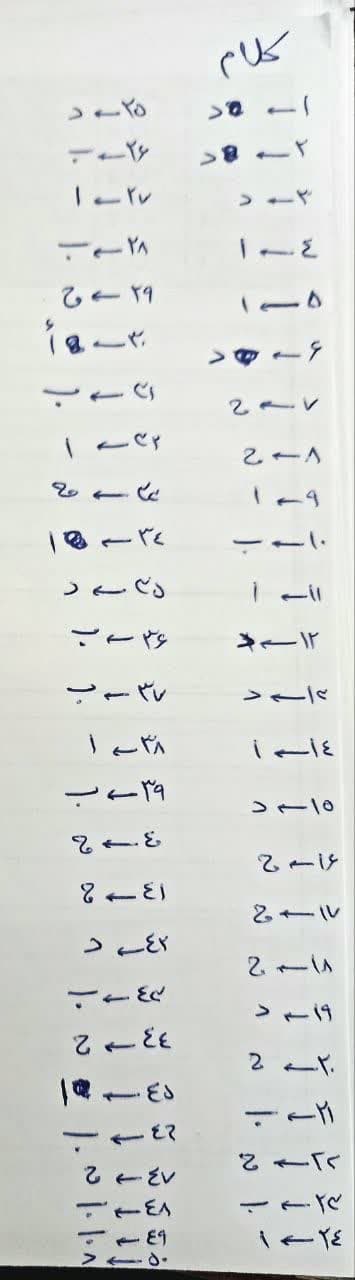 كلام
١ ← د
٢ ← د
٣ ← د
٤ ← ا
٥ ← ا
۶ ← د
٧ ← ج
٨ ← ج
٩ ← ا
١٠ ← ب
١١ ← ا
١٢ ← د
١٣ ← د
١٤ ← ا
١٥ ← د
١۶ ← ج
١٧ ← ج
١٨ ← ج
١٩ ← د
٢٠ ← ج
٢١ ← ب
٢٢ ← ج
٢٣ ← ب
٢٤ ← ا
٢٥ ← د
٢۶ ← ب
٢٧ ← ا
٢٨ ← ب
٢٩ ← ج
٣٠ ← أ
٣١ ← ب
٣٢ ← ا
٣٣ ← ج
٣٤ ← ا
٣٥ ← د
٣۶ ← ب
٣٧ ← ب
٣٨ ← ا
٣٩ ← ب
٤٠ ← ج
٤١ ← ج
٤٢ ← د
٤٣ ← ب
٤٤ ← ج
٤٥ ← ا
٤۶ ← ب
٤٧ ← ج
٤٨ ← ب
٤٩ ← ب
٥٠ ← د